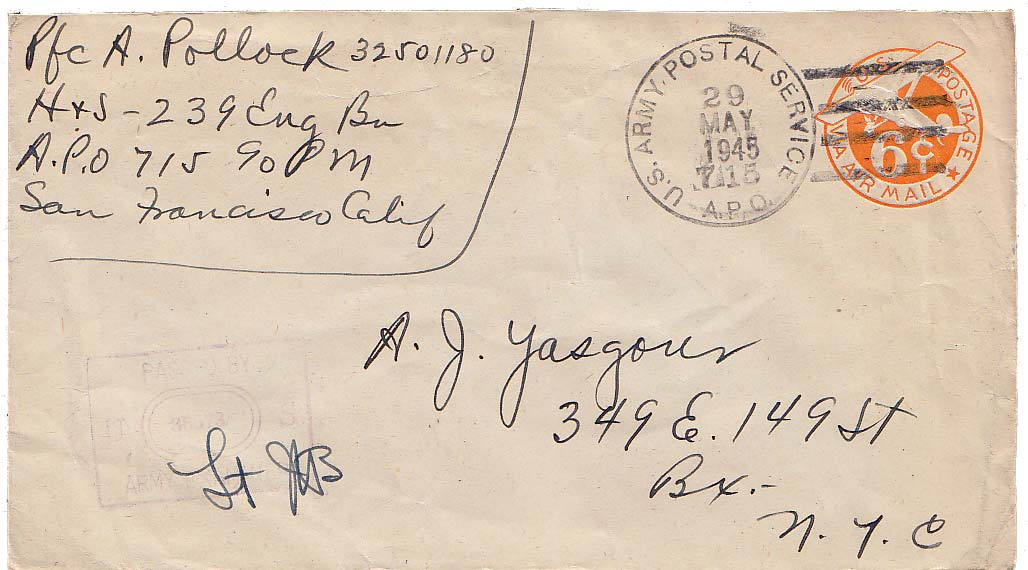 Pfc A. Pollock 32501180
H+S - 239 Eng Bn
A.P.O 715 % P M
San Francisco Calif
U.S. ARMY. POSTAL SERVICE
29
MAY
1945
715
A.P.O.
U.S. POSTAGE
6¢
VIA AIR MAIL
A. J. Yasgour
349 E. 149 St
Bx.-
N. Y. C
PASSED BY
ARMY
Lt JHB